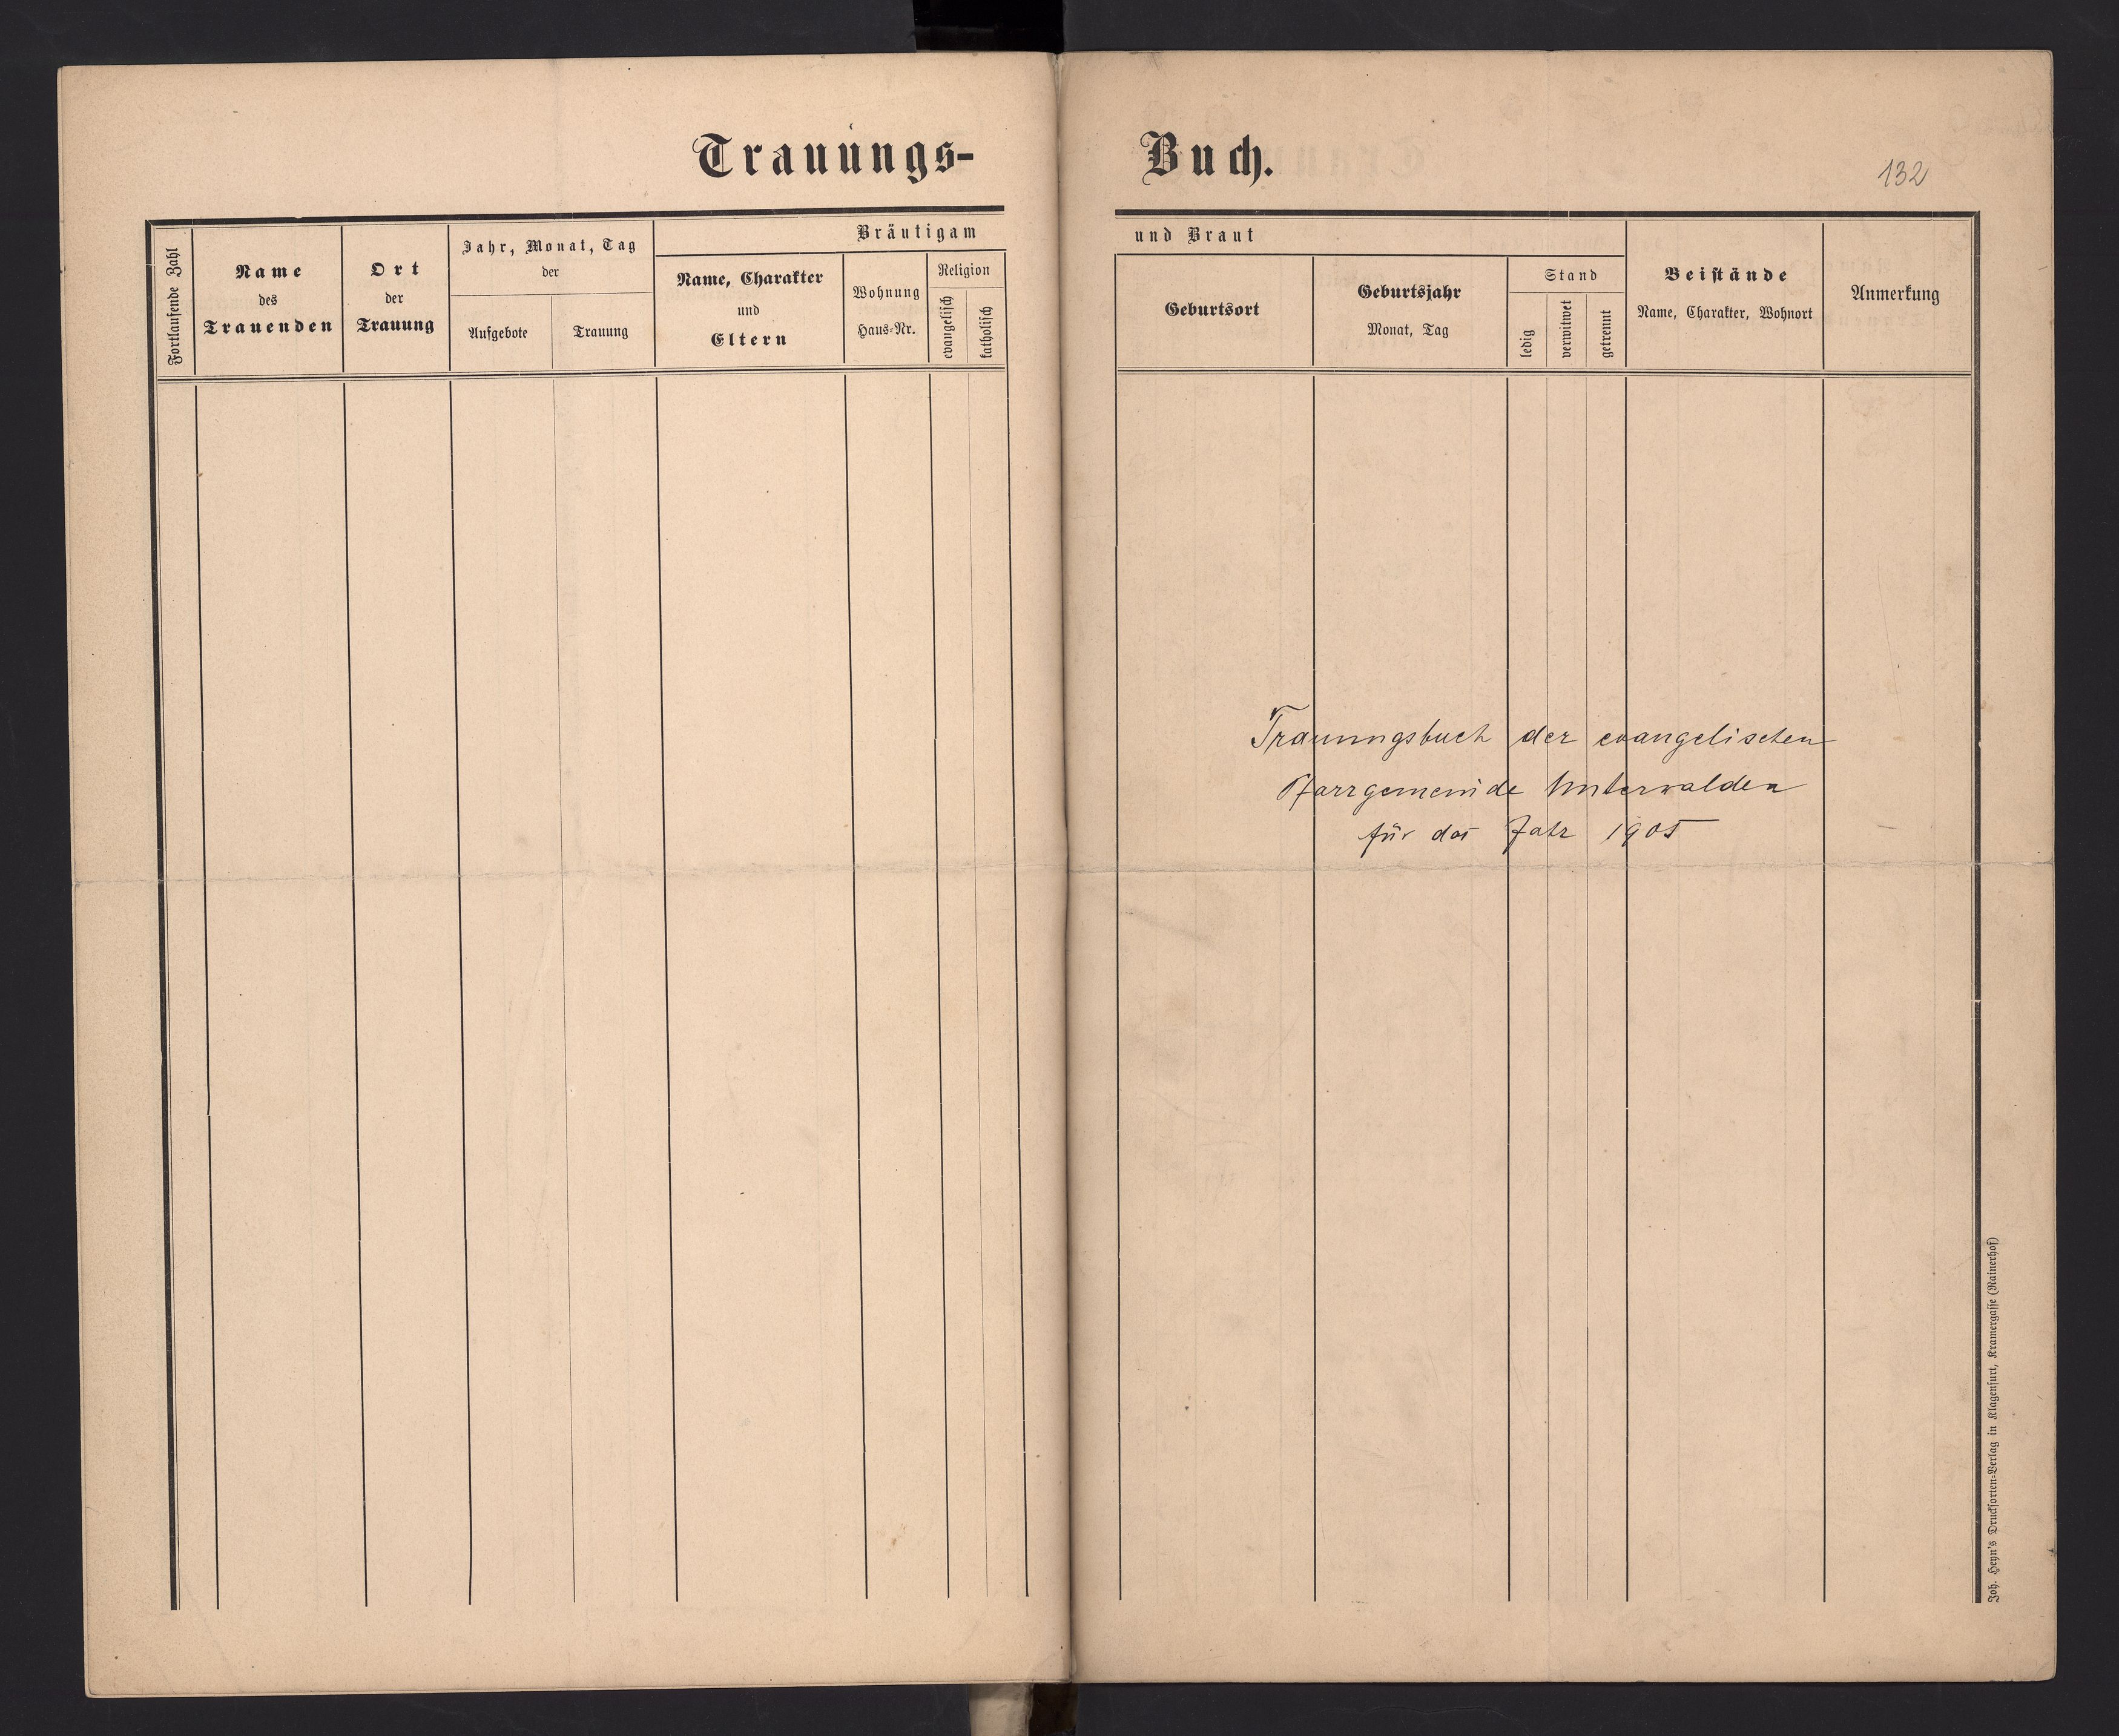 Trauungs-
Buch.
132
Fortlaufende Zahl
Name
des
Trauenden
Ort
der
Trauung
Jahr, Monat, Tag
der
Aufgebote
Trauung
Bräutigam
Name, Charakter
und
Eltern
Wohnung
Haus-Nr.
Religion
evangelisch
katholisch
und Braut
Geburtsort
Geburtsjahr
Monat, Tag
Stand
ledig
verwitwet
getrennt
Beistände
Name, Charakter, Wohnort
Anmerkung
Trauungsbuch der evangelischen
Pfarrgemeinde Unterwalden
für das Jahr 1905
Joh. Heyn's Drucksorten-Verlag in Klagenfurt, Kramergasse (Rainerhof)